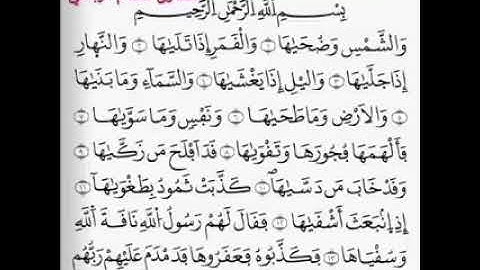 بِسْمِ اللَّهِ الرَّحْمَٰنِ الرَّحِيمِ
وَالشَّمْسِ وَضُحَىٰهَا ۝١ وَالْقَمَرِ إِذَا تَلَىٰهَا ۝٢ وَالنَّهَارِ
إِذَا جَلَّىٰهَا ۝٣ وَالَّيْلِ إِذَا يَغْشَىٰهَا ۝٤ وَالسَّمَاءِ وَمَا بَنَىٰهَا
۝٥ وَالْأَرْضِ وَمَا طَحَىٰهَا ۝٦ وَنَفْسٍ وَمَا سَوَّىٰهَا ۝٧
فَأَلْهَمَهَا فُجُورَهَا وَتَقْوَىٰهَا ۝٨ قَدْ أَفْلَحَ مَن زَكَّىٰهَا ۝٩
وَقَدْ خَابَ مَن دَسَّىٰهَا ۝١٠ كَذَّبَتْ ثَمُودُ بِطَغْوَىٰهَا ۝١١
إِذِ انۢبَعَثَ أَشْقَىٰهَا ۝١٢ فَقَالَ لَهُمْ رَسُولُ اللَّهِ نَاقَةَ اللَّهِ
وَسُقْيَاهَا ۝١٣ فَكَذَّبُوهُ فَعَقَرُوهَا فَدَمْدَمَ عَلَيْهِمْ رَبُّهُم